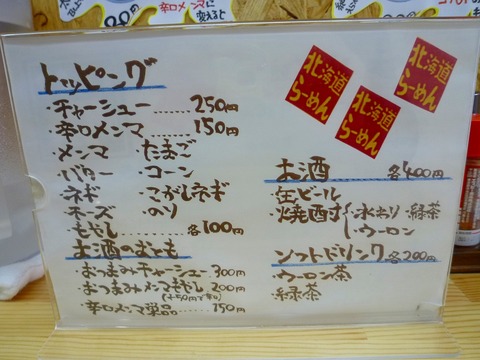 辛口メンマに
変えると
トッピング
・チャーシュー……250円
・辛口メンマ……150円
・メンマ ・たまご
・バター ・コーン
・ネギ ・こがしネギ
・チーズ ・のり
・もやし 各100円
お酒のおとも
・おつまみチャーシュー 300円
・おつまみメンマもやし 200円
(+50円で辛口)
・辛口メンマ単品……150円
北海道
らーめん
北海道
らーめん
北海道
らーめん
お酒 各400円
・生ビール
・焼酎 氷おり・緑茶
・ウーロン
ソフトドリンク 各200円
ウーロン茶
緑茶